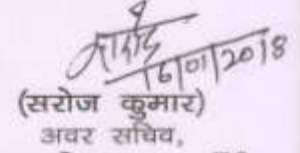 16/01/2018
(सरोज कुमार)
अवर सचिव,